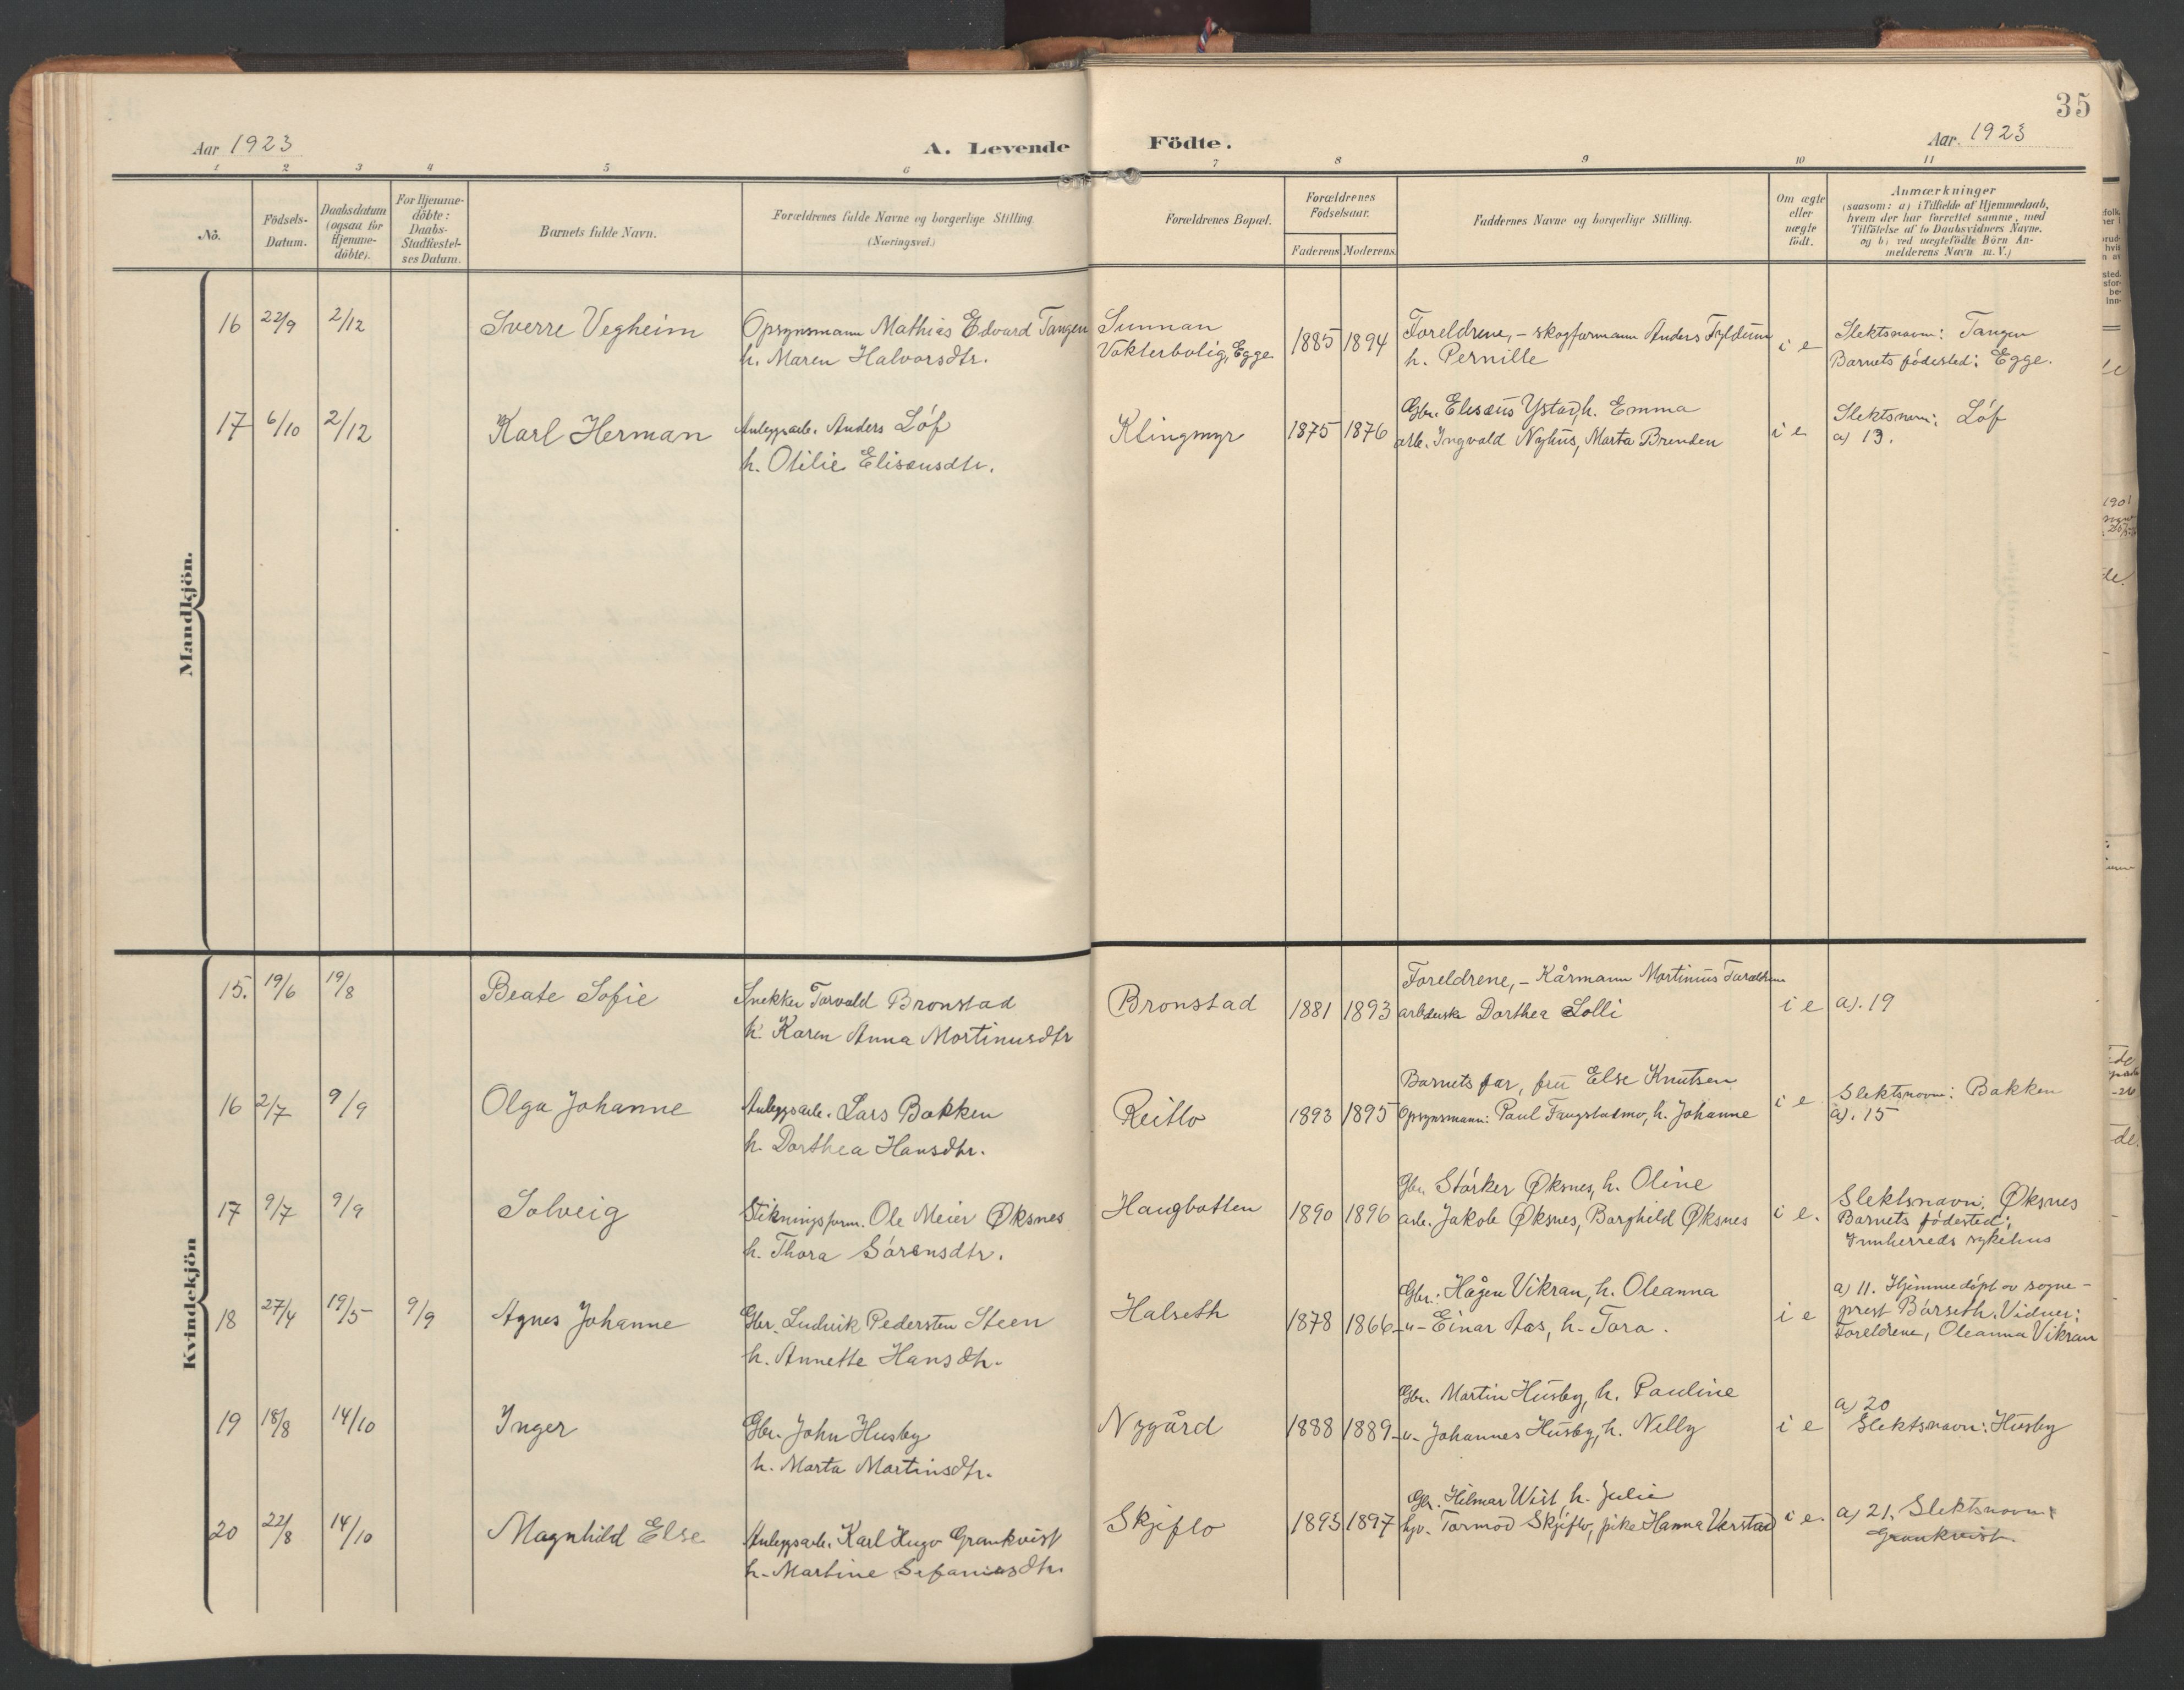 35
Aar 1923
A. Levende Födte.
Aar. 1923
1 2 3 4 5 6 7 8 9 10 11
No.
Födsels-
Datum.
Daabsdatum
(ogsaa for
Hjemme-
döbte).
For Hjemme-
döbte:
Daabs-
Stadfæstel-
ses Datum.
Barnets fulde Navn.
Forældrenes fulde Navne og borgerlige Stilling.
(Næringsvei.)
Forældrenes Bopæl.
Forældrenes
Födselsaar.
Faderens Moderens
Faddernes Navne og borgerlige Stilling.
Om ægte
eller
uægte
födt.
Anmærkninger
(saasom: a) i Tilfælde af Hjemmedaab,
hvem der har forrettet samme, med
Tilföielse af to Daabsvidners Navne.
og b) ved uægtefödte Börn An-
melderens Navn m. V.)
Mandkjön.
16 22/9 2/12 Sverre Vegheim
Opsynsmann Mathias Edvard Tangen
h. Maren Halvorsdtr.
Sunnan
Vokterbolig, Egge
1885 1894
Foreldrene, - skogformann Anders Fyldum
h. Pernille
i e
Slektsnavn: Tangen
Barnets födested: Egge.
17 6/10 2/12 Karl Herman
Anleggsarb. Anders Löf
h. Otilie Eliseusdtr.
Klingmyr
1875 1876
Gbr. Eliseus Ystad, h. Emma
arb. Ingvald Nyhus, Marta Brenden
i e
Slektsnavn: Löf
a) 13.
Kvindekjön
15. 19/6 19/8 Beate Sofie
Snekker Torvald Bronstad
h. Karen Anna Martinusdtr
Bronstad
1881 1893
Foreldrene, - Kårmann Martinius
arbeiderske Dorthea Lolli
i e
a). 19
16 2/7 9/9 Olga Johanne
Anleggsarb. Lars Bakken
h. Dorthea Hansdtr.
Reitlo
1893 1895
Barnets far, fru Else Knutsen
Opsynsmann: Paul Faugstadmo, h. Johanne
i e
Slektsnavn: Bakken
a). 15
17 9/7 9/9 Solveig
Stikningsform. Ole Meier Øksnes
h. Thora Sörensdtr.
Haugbotten
1890 1896
Gbr. Störker Øksnes, h. Oline
arb. Jakob Øksnes, Borghild Øksnes
i e.
Slektsnavn: Øksnes
Barnets födested:
Innherreds sykehus
18 27/4 19/5 9/9 Agnes Johanne
Gbr. Ludvik Pedersten Steen
h. Annette Hansdtr.
Halseth
1878 1866
Gbr. Hågen Vikran, h. Oleanna
-"- Einar Aas, h. Tora.
i e
a) 11. Hjemmedöpt av sogne-
prest Bårseth. Vidner:
Foreldrene, Oleanna Vikran
19 18/8 14/10 Inger
Gbr. John Husby
h. Marta Martinsdtr.
Nygård
1888 1889
Gbr. Martin Husby, h. Pauline
-"- Johannes Husby, h. Nelly
i e
a) 20
Slektsnavn: Husby
20 22/8 14/10 Magnhild Else
Anleggsarb. Karl Hugo Grankvist
h. Martine Sefaniasdtr.
Skjeflo
1893 1897
Gbr. Hilmar Wist, h. Julie
Tormod Skjeflo, pike Hanna Verstad
i e.
a) 21. Slektsnavn:
Grankvist.